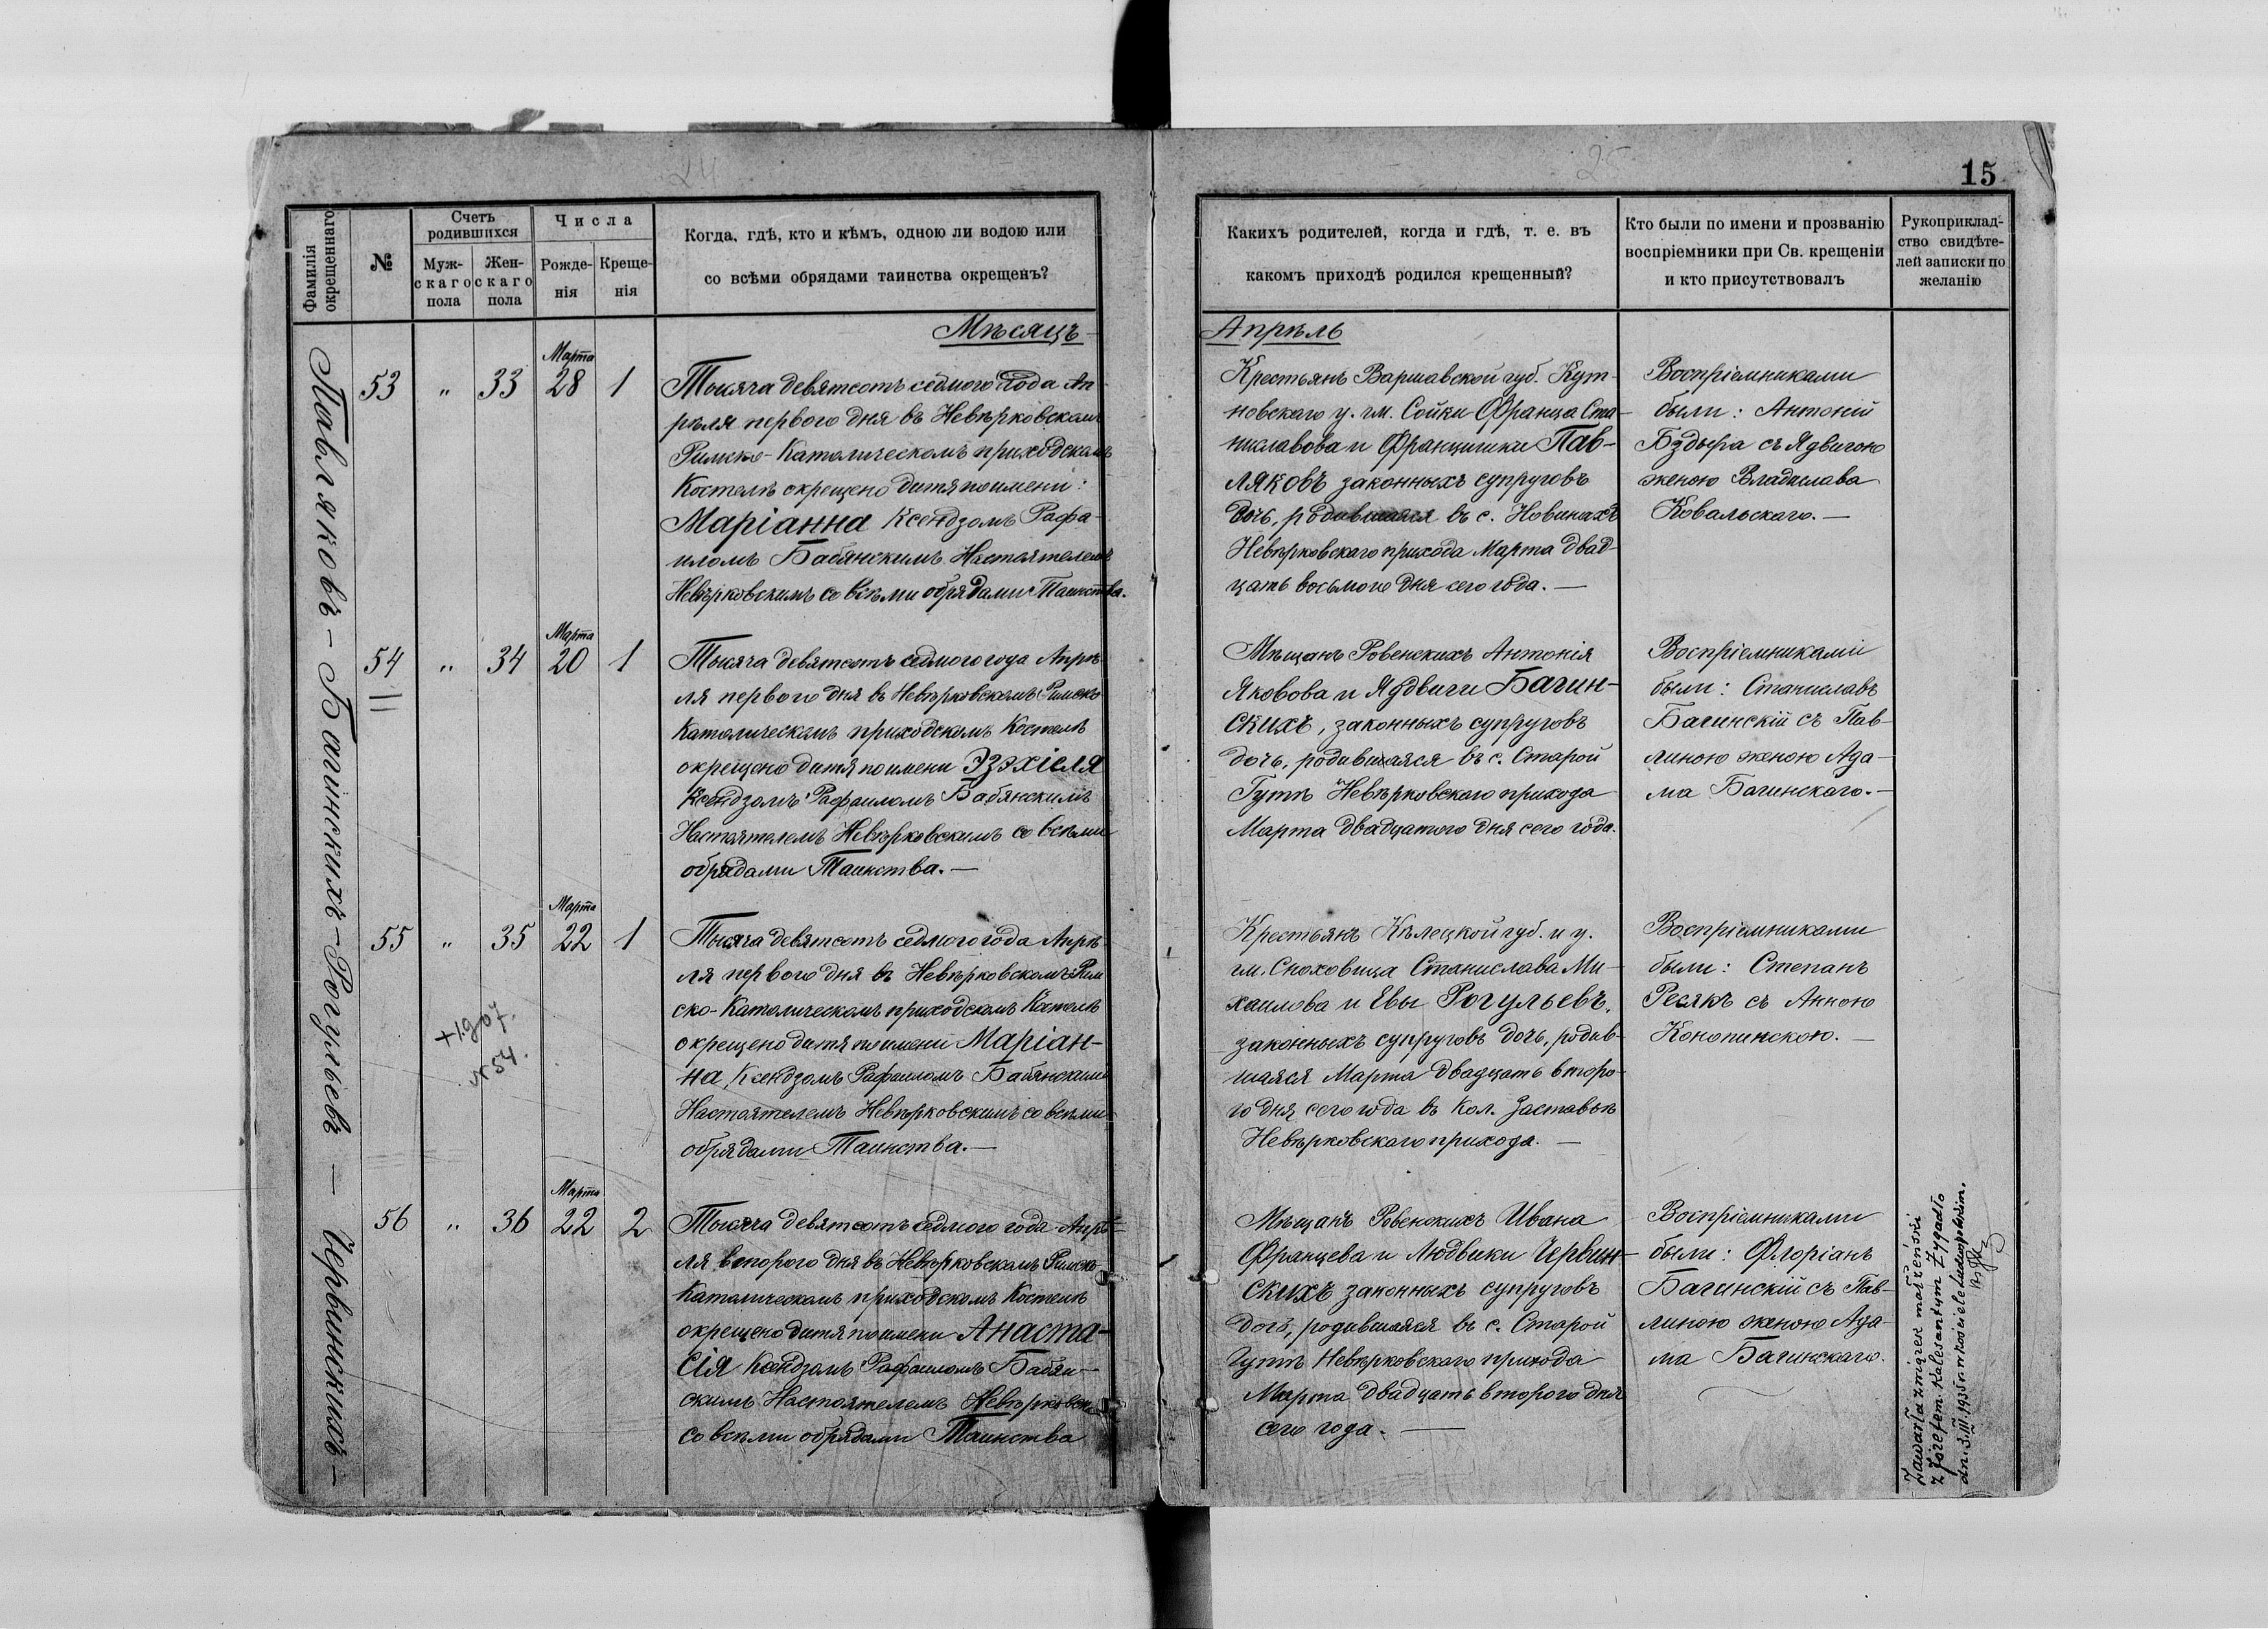 24
25
15
Фамилія
окрещеннаго
№
Счетъ
родившихся
Муж-
скаго
пола
Жен-
скаго
пола
Числа
Рожде-
нія
Креще-
нія
Когда, гдѣ, кто и кѣмъ, одною ли водою или
со всѣми обрядами таинства окрещенъ?
Какихъ родителей, когда и гдѣ, т. е. въ
какомъ приходѣ родился крещенный?
Кто были по имени и прозванію
воспріемники при Св. крещеніи
и кто присутствовалъ
Рукоприклад-
ство свидѣте-
лей записки по
желанію
Мѣсяцъ
Апрѣль
Павляковъ – Багинскихъ – Рогульевъ – Червинскихъ –
Марта
53 " 33 28 1
Тысяча девятсотъ седмого года Ап-
рѣля первого дня въ Невѣрковскомъ
Римско-Католическомъ приходскомъ
Костелѣ окрещено дитя по имени:
Маріанна Ксендзомъ Рафа-
иломъ Бабянскимъ Настоятелемъ
Невѣрковскимъ со всѣми обрядами Таинства.
Крестьянъ Варшавской губ. Кут-
новскаго у. гм. Сойки Франца Ста-
ниславова и Францишки Пав-
ляковъ законныхъ супруговъ
дочь, родившаяся въ с. Новинахъ
Невѣрковскаго прихода Марта двад-
цать восьмого дня сего года. —
Воспріемниками
были: Антоній
Бздыра съ Ядвигою
женою Владислава
Ковальскаго. —
Марта
54 " 34 20 1
Тысяча девятсотъ седмого года Апрѣ-
ля первого дня въ Невѣрковскомъ Римско
Католическомъ приходскомъ Костелѣ
окрещено дитя по имени Эзэхіеля
Ксендзомъ Рафаиломъ Бабянскимъ
Настоятелемъ Невѣрковскимъ со всѣми
обрядами Таинства. —
Мѣщанъ Ровенскихъ Антонія
Яковова и Ядвиги Багин-
скихъ, законныхъ супруговъ
дочь, родившаяся въ с. Старой
Гутѣ Невѣрковского прихода
Марта двадцатого дня сего года.
Воспріемниками
были: Станиславъ
Багинскій съ Пав-
линою женою Ада-
ма Багинскаго. —
Марта
55 " 35 22 1
+1907.
N 54.
Тысяча девятсотъ седмого года Апрѣ-
ля первого дня въ Невѣрковскомъ Рим
ско-Католическомъ приходскомъ Костелѣ
окрещено дитя по имени Маріан-
на, Ксендзомъ Рафаиломъ Бабянскимъ
Настоятелемъ Невѣрковскимъ со всѣми
обрядами Таинства. —
Крестьянъ Кѣлецкой губ. и у.
гм. Сноховица Станислава Ми-
хаилова и Евы Рогульевъ,
законныхъ супруговъ дочь, родив-
шаяся Марта двадцать второ-
го дня сего года въ Кол. Заставье
Невѣрковскаго прихода. —
Воспріемниками
были: Степанъ
Ресякъ съ Анною
Конопинскою. —
Марта
56 " 36 22 2
Тысяча девятсотъ седмого года Апрѣ-
ля второго дня въ Невѣрковскомъ Римско
Католическомъ приходскомъ Костелѣ
окрещено дитя по имени Анаста-
сія Ксендзомъ Рафаиломъ Бабян-
скимъ Настоятелемъ Невѣрковск.
со всѣми обрядами Таинства
Мѣщанъ Ровенскихъ Ивана
Францева и Людвики Червин-
скихъ законныхъ супруговъ
дочь, родившаяся въ с. Старой
Гутѣ Невѣрковского прихода
Марта двадцать второго дня
сего года. —
Воспріемниками
были: Флоріанъ
Багинскій съ Пав-
линою женою Ада-
ма Багинскаго.
Zawarła związek małżeński
z Józefem Kalesantym Żygadło
dn. 3.III.1935 r. w kościele Ludwipolskim.